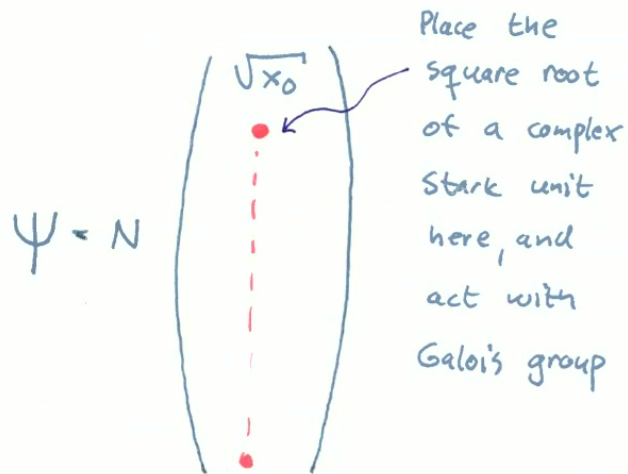 Place the
square root
of a complex
Stark unit
here, and
act with
Galois group
√x₀
Ψ = N